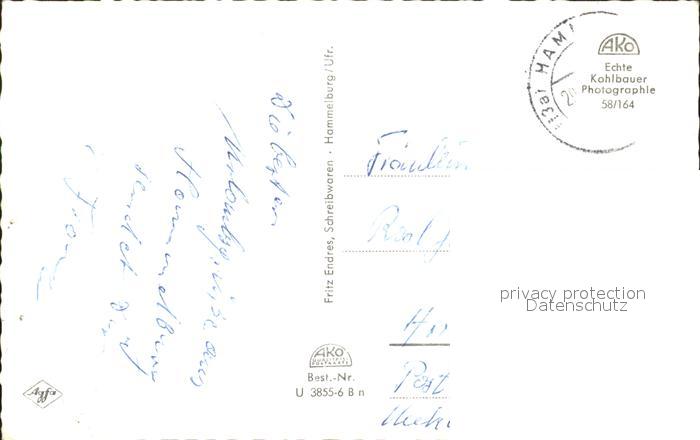 Die besten
Urlaubsgrüße aus
Hammelburg
sendet Dir
Fritz Endres, Schreibwaren · Hammelburg/Ufr.
AKO
Best.-Nr.
U 3855-6 B n
Agfa
(13a) HAMM
AKO
Echte
Kohlbauer
Photographie
58/164
Fräulein
privacy protection
Datenschutz
Post